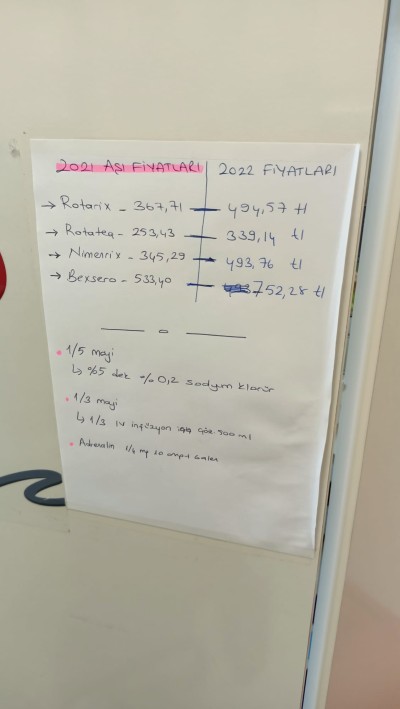 2021 AŞI FİYATLARI 2022 FİYATLARI
→ Rotarix - 367,71 — 494,57 tl
→ Rotateq - 253,43 — 339,14 tl
→ Nimenrix - 345,29 — 493,76 tl
→ Bexsero - 533,40 — 752,28 tl
1/5 mayi
↳ %5 dek %0,2 sodyum klorür
1/3 mayi
↳ 1/3 IV infüzyon için çöz. 500 ml
Adrenalin 1/4 mg 10 ampul